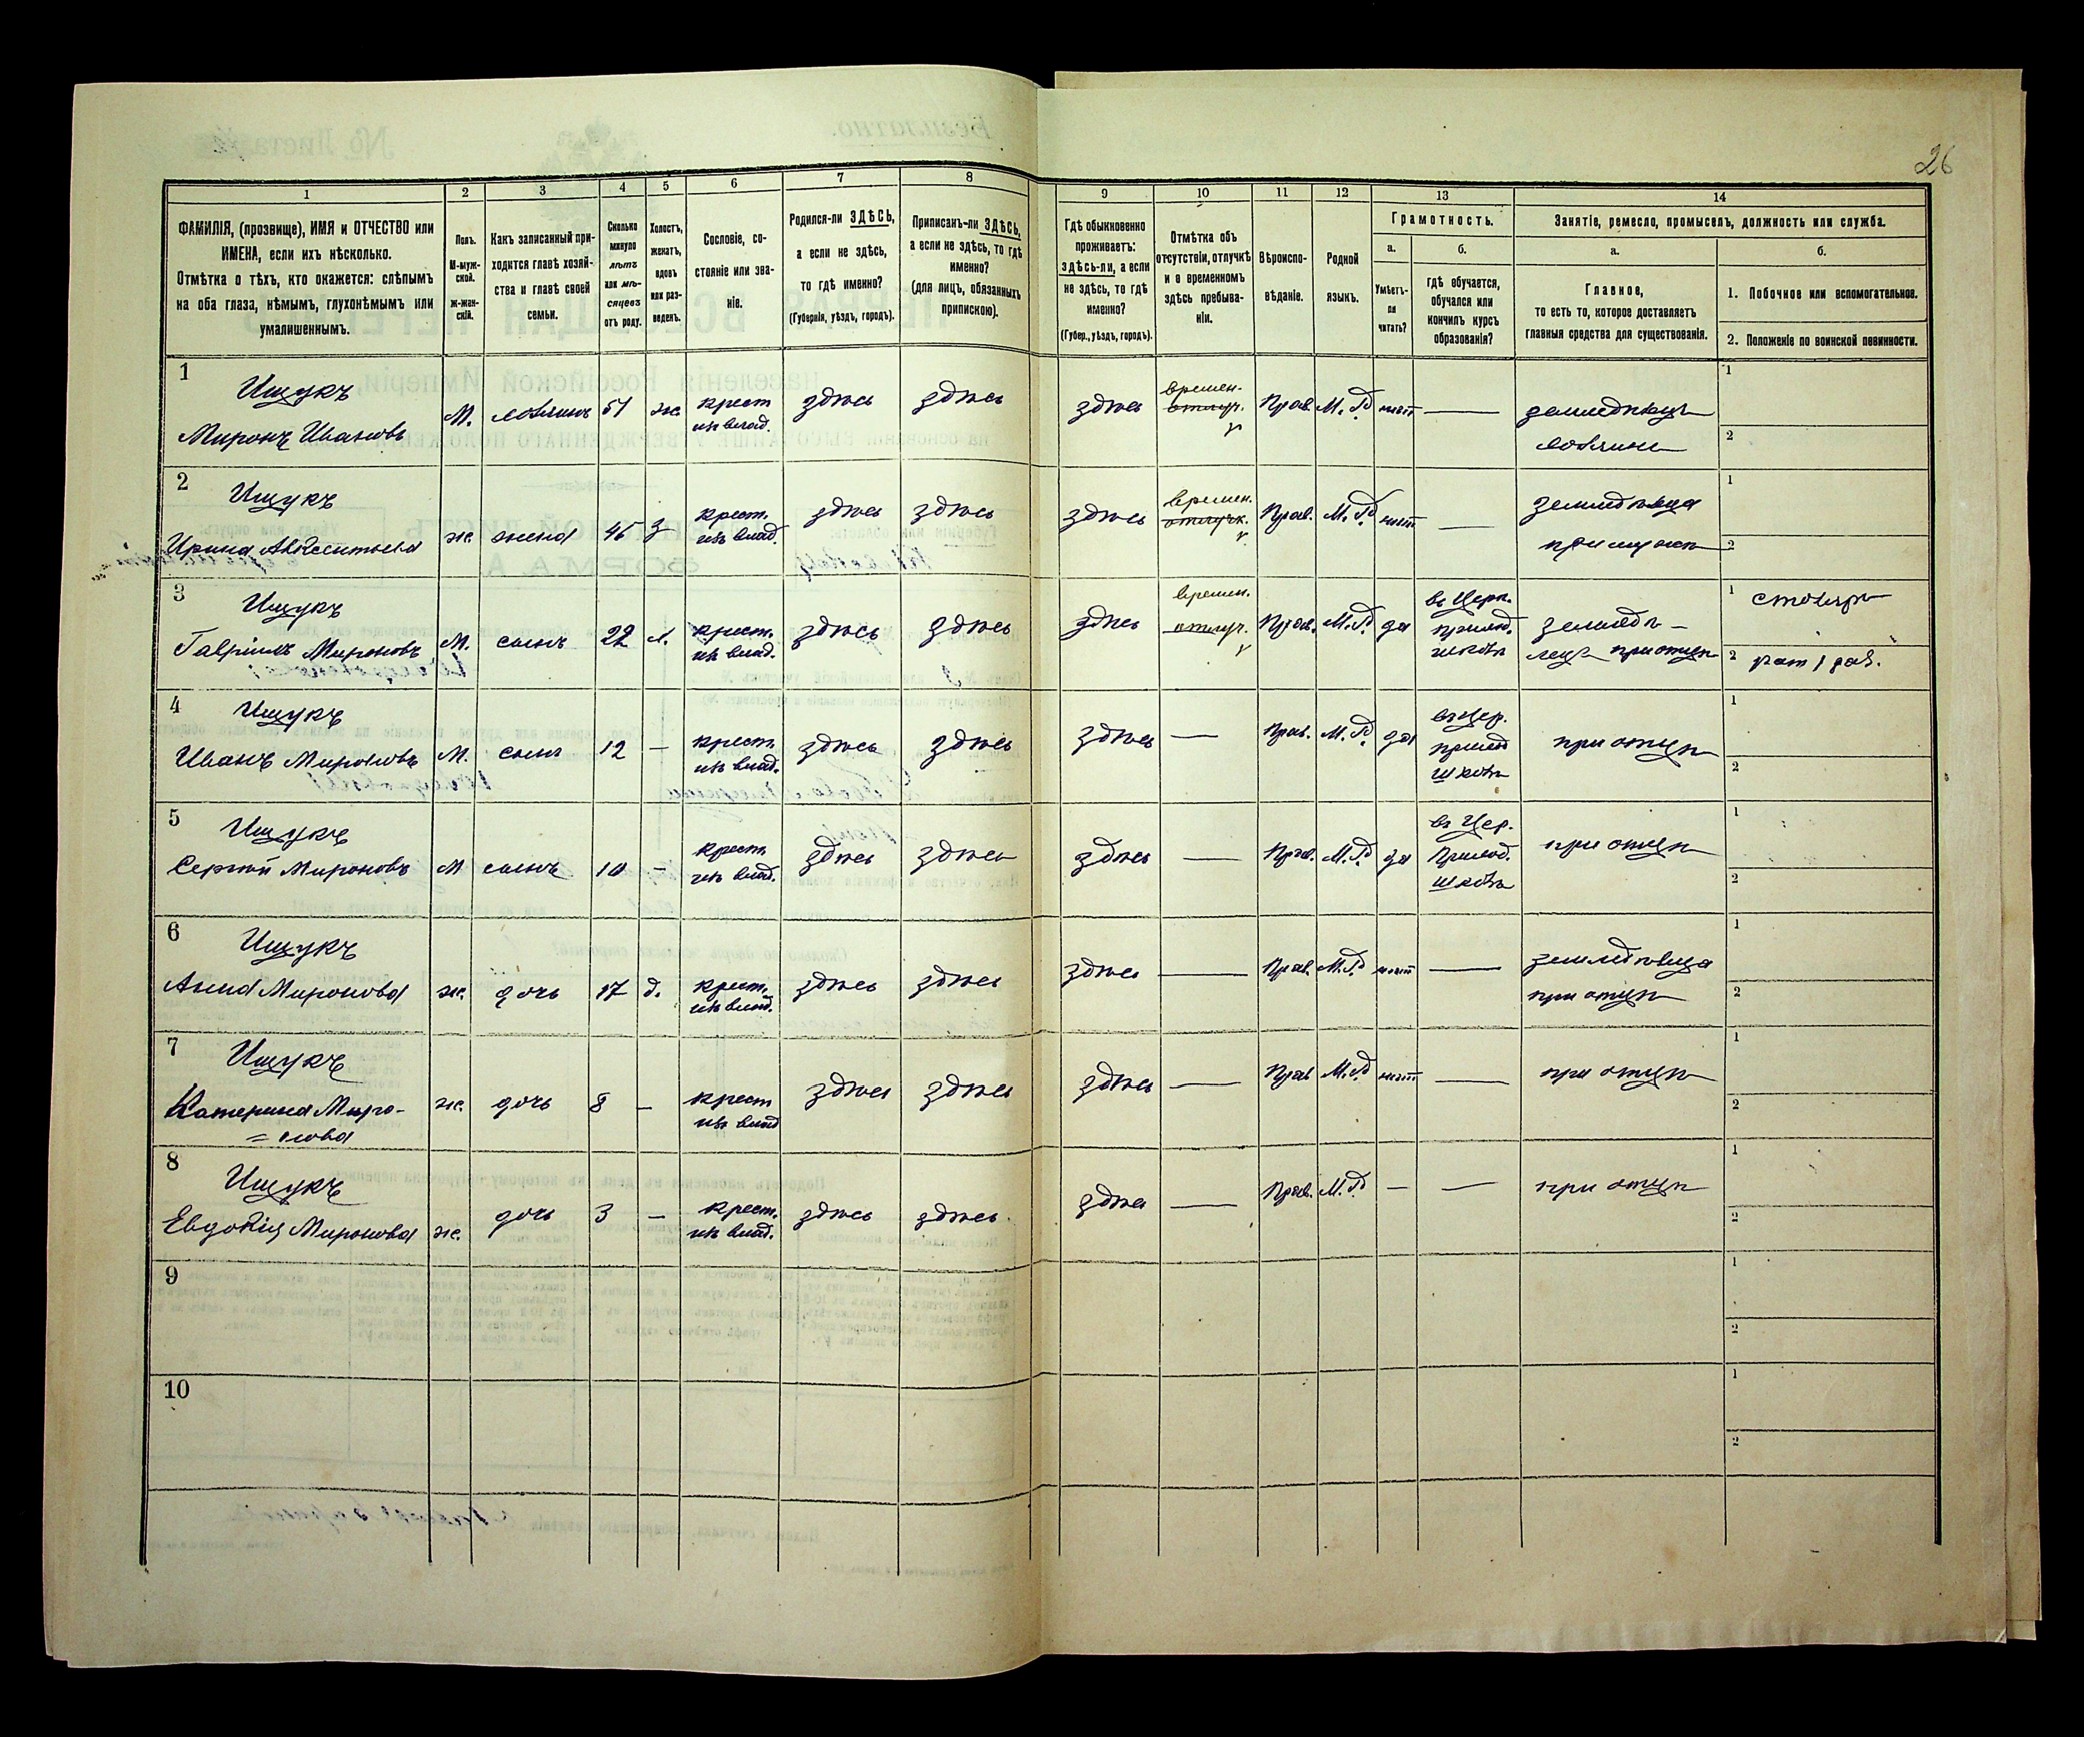 26
1 2 3 4 5 6 7 8 9 10 11 12 13 14
ФАМИЛІЯ, (прозвище), ИМЯ и ОТЧЕСТВО или
ИМЕНА, если ихъ нѣсколько.
Отмѣтка о тѣхъ, кто окажется: слѣпымъ
на оба глаза, нѣмымъ, глухонѣмымъ или
умалишеннымъ.
Полъ.
М-муж-
ской.
Ж-жен-
скій.
Какъ записанный при-
ходится главѣ хозяй-
ства и главѣ своей
семьи.
Сколько
минуло
лѣтъ
или мѣ-
сяцевъ
отъ роду.
Холостъ,
женатъ,
вдовъ
или раз-
веденъ.
Сословіе, со-
стояніе или зва-
ніе.
Родился-ли ЗДѢСЬ,
а если не здѣсь,
то гдѣ именно?
(Губернія, уѣздъ, городъ).
Приписанъ-ли ЗДѢСЬ,
а если не здѣсь, то гдѣ
именно?
(для лицъ, обязанныхъ
припискою).
Гдѣ обыкновенно
проживаетъ:
здѣсь-ли, а если
не здѣсь, то гдѣ
именно?
(Губер., уѣздъ, городъ).
Отмѣтка объ
отсутствіи, отлучкѣ
и о временномъ
здѣсь пребыва-
ніи.
Вѣроиспо-
вѣданіе.
Родной
языкъ.
Грамотность.
а.
Умѣетъ-
ли
читать?
б.
Гдѣ обучается,
обучался или
кончилъ курсъ
образованія?
Занятіе, ремесло, промыселъ, должность или служба.
а.
Главное,
то есть то, которое доставляетъ
главныя средства для существованія.
б.
1. Побочное или вспомогательное.
2. Положеніе по воинской повинности.
1
Ищукъ
Миронъ Ивановъ
М.
хозяинъ
51
ж.
крест
изъ влад.
здѣсь
здѣсь
здѣсь
времен.
отлуч.
Прав.
М. Р.
нѣтъ
—
земледѣлецъ
хозяинъ
1
2
2
Ищукъ
Ирина
ж.
жена
45
з
крест.
изъ влад.
здѣсь
здѣсь
здѣсь
времен.
отлучк.
Прав.
М. Р.
нѣтъ
—
земледѣлица
при мужѣ
1
2
3
Ищукъ
Гавріилъ Мироновъ
М.
сынъ
22
х.
крест.
изъ влад.
здѣсь
здѣсь
здѣсь
времен.
отлуч.
Прав.
М. Р.
да
въ Церк.
приход.
школѣ
земледѣ-
лецъ при отцѣ
1 столяръ
2 рат 1 раз.
4
Ищукъ
Иванъ Мироновъ
М.
сынъ
12
—
крест.
изъ влад.
здѣсь
здѣсь
здѣсь
—
Прав.
М. Р.
да
въ Цер.
приход
школѣ
при отцѣ
1
2
5
Ищукъ
Сергѣй Мироновъ
М
сынъ
10
—
крест.
изъ влад.
здѣсь
здѣсь
здѣсь
—
Прав.
М. Р.
да
въ Цер.
Приход.
школѣ
при отцѣ
1
2
6
Ищукъ
Анна Миронова
ж.
дочь
17
д.
крест.
изъ влад.
здѣсь
здѣсь
здѣсь
—
Прав.
М. Р.
нѣтъ
—
земледѣлица
при отцѣ
1
2
7
Ищукъ
Катерина Миро-
=нова
ж.
дочь
8
—
крест
изъ влад
здѣсь
здѣсь
здѣсь
—
Прав
М. Р.
нѣтъ
—
при отцѣ
1
2
8
Ищукъ
Евдокія Миронова
ж.
дочь
3
—
крест.
изъ влад.
здѣсь
здѣсь.
здѣсь
—
Прав.
М. Р.
—
—
при отцѣ
1
2
9
1
2
10
1
2